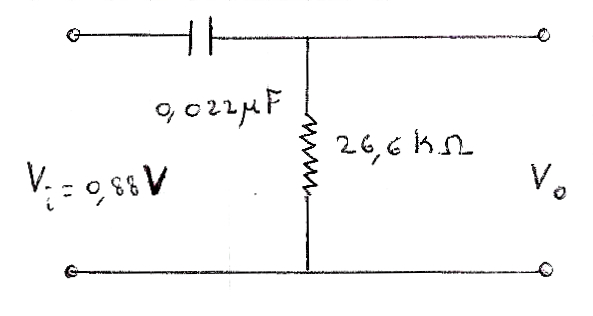 0,022μF
26,6 kΩ
Vi = 0,88V
Vo